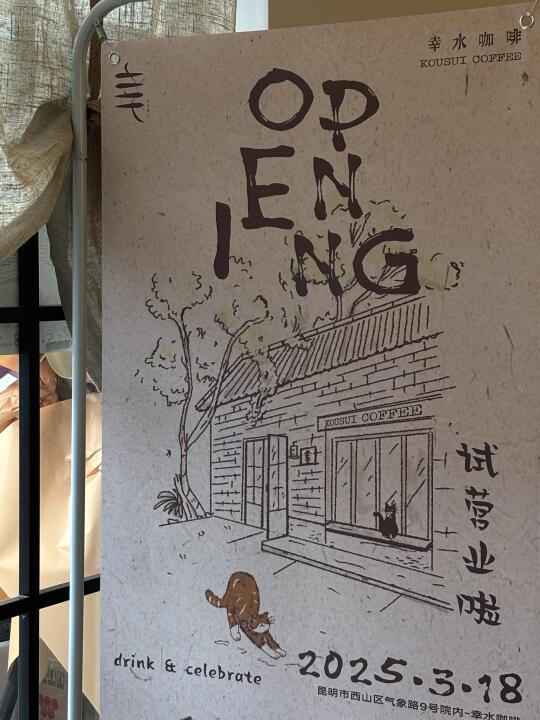 幸水咖啡
KOUSUI COFFEE
OP
EN
ING
KOUSUI COFFEE
试营业啦
drink & celebrate
2025.3.18
昆明市西山区气象路9号院内-幸水咖啡